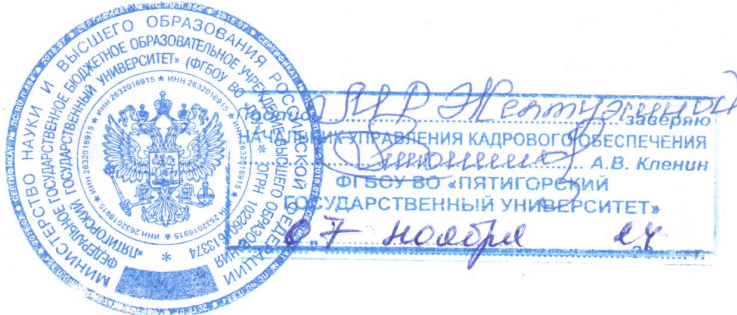 МИНИСТЕРСТВО НАУКИ И ВЫСШЕГО ОБРАЗОВАНИЯ РОССИЙСКОЙ ФЕДЕРАЦИИ
ФЕДЕРАЛЬНОЕ ГОСУДАРСТВЕННОЕ БЮДЖЕТНОЕ ОБРАЗОВАТЕЛЬНОЕ УЧРЕЖДЕНИЕ ВЫСШЕГО ОБРАЗОВАНИЯ
«ПЯТИГОРСКИЙ ГОСУДАРСТВЕННЫЙ УНИВЕРСИТЕТ» (ФГБОУ ВО «ПГУ») * ОГРН
* ИНН 2632016915 * ИНН 2632016915 *
Подпись
заверяю
НАЧАЛЬНИК УПРАВЛЕНИЯ КАДРОВОГО ОБЕСПЕЧЕНИЯ
А.В. Кленин
ФГБОУ ВО «ПЯТИГОРСКИЙ
ГОСУДАРСТВЕННЫЙ УНИВЕРСИТЕТ»
07 ноября 24 г.